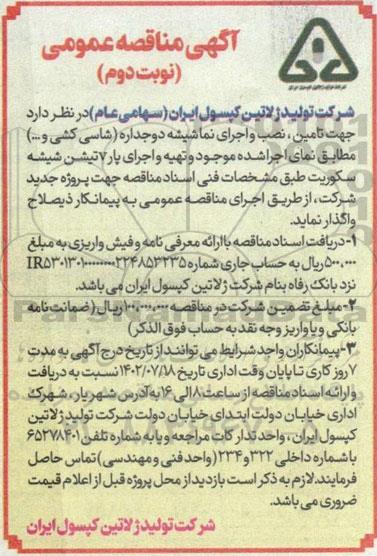 آگهی مناقصه عمومی
(نوبت دوم)
شرکت تولید ژلاتین کپسول ایران (سهامی عام) در نظر دارد
جهت تامین ، نصب و اجرای نما شیشه دوجداره (شاسی کشی و ...)
مطابق نمای اجرا شده موجود و تهیه و اجرای پارتیشن شیشه
سکوریت طبق مشخصات فنی اسناد مناقصه جهت پروژه جدید
شرکت ، از طریق اجرای مناقصه عمومی به پیمانکار ذیصلاح
واگذار نماید.
۱- دریافت اسناد مناقصه با ارائه معرفی نامه و فیش واریزی به مبلغ
۵۰۰,۰۰۰ ریال به حساب جاری شماره
نزد بانک رفاه بنام شرکت ژلاتین کپسول ایران می باشد.
۲- مبلغ تضمین شرکت در مناقصه ریال (ضمانت نامه
بانکی و یا واریز وجه نقد به حساب فوق الذکر)
۳- پیمانکاران واجد شرایط می توانند از تاریخ درج آگهی به مدت
۷ روز کاری تا پایان وقت اداری تاریخ ۱۴۰۲/۰۷/۱۸ نسبت به دریافت
و ارائه اسناد مناقصه از ساعت ۸ الی ۱۶ به آدرس شهریار، شهرک
اداری خیابان دولت ابتدای خیابان دولت شرکت تولید ژلاتین
کپسول ایران ، واحد تدارکات مراجعه و یا به شماره تلفن ۶۵۲۷۸۴۰۱
با شماره داخلی ۳۲۲ و ۲۳۴ (واحد فنی و مهندسی) تماس حاصل
فرمایند. لازم به ذکر است بازدید از محل پروژه قبل از اعلام قیمت
ضروری می باشد.
شرکت تولید ژلاتین کپسول ایران